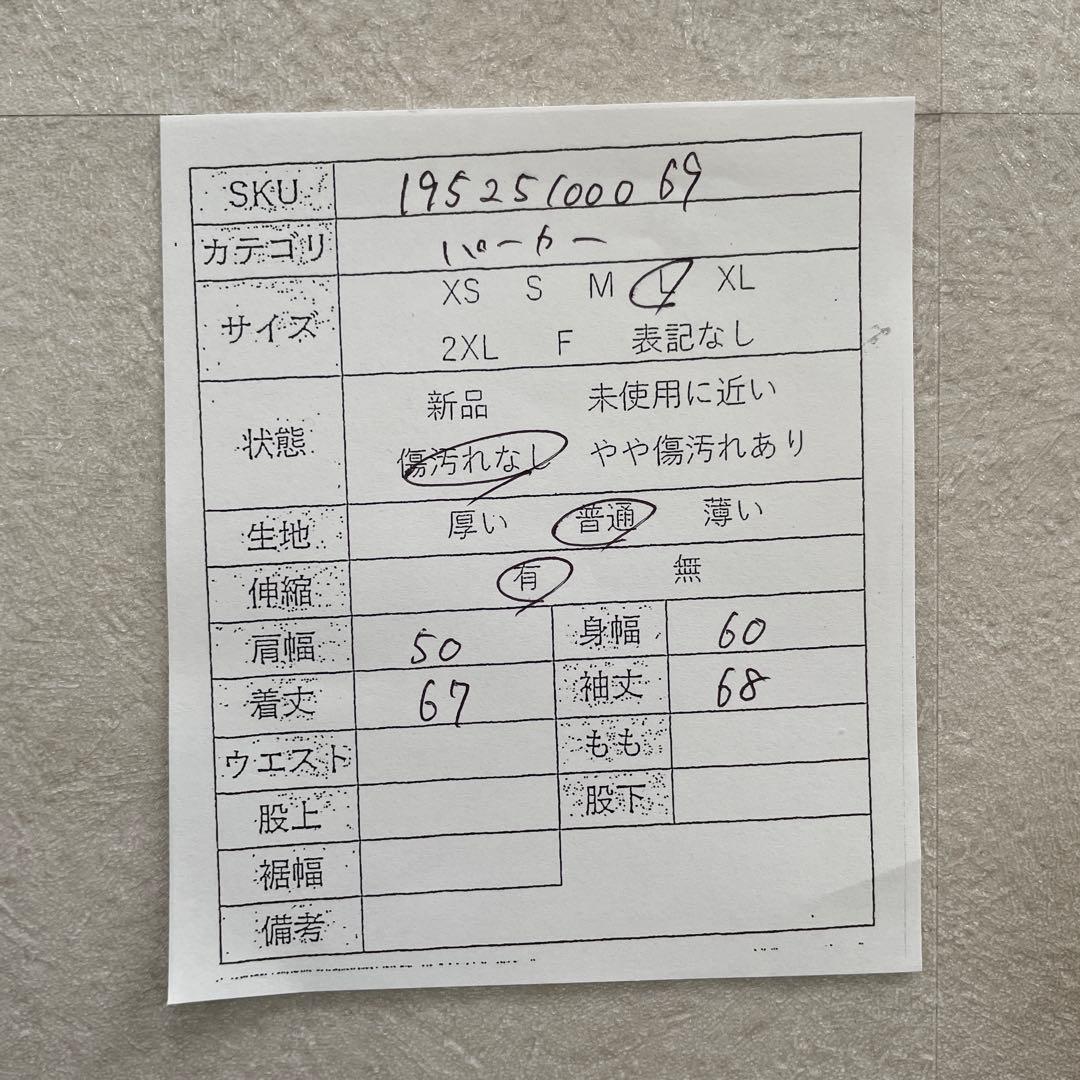 SKU 19525100069
カテゴリ パーカー
サイズ XS S M L XL
2XL F 表記なし
状態 新品 未使用に近い
傷汚れなし やや傷汚れあり
生地 厚い 普通 薄い
伸縮 有 無
肩幅 50 身幅 60
着丈 67 袖丈 68
ウエスト もも
股上 股下
裾幅
備考